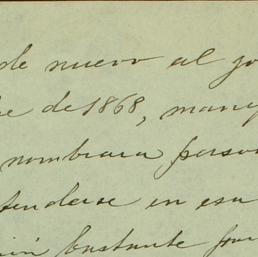 de nuevo al go
re de 1868, mani
nombrara perso
tenderse en esa
ción bastante par